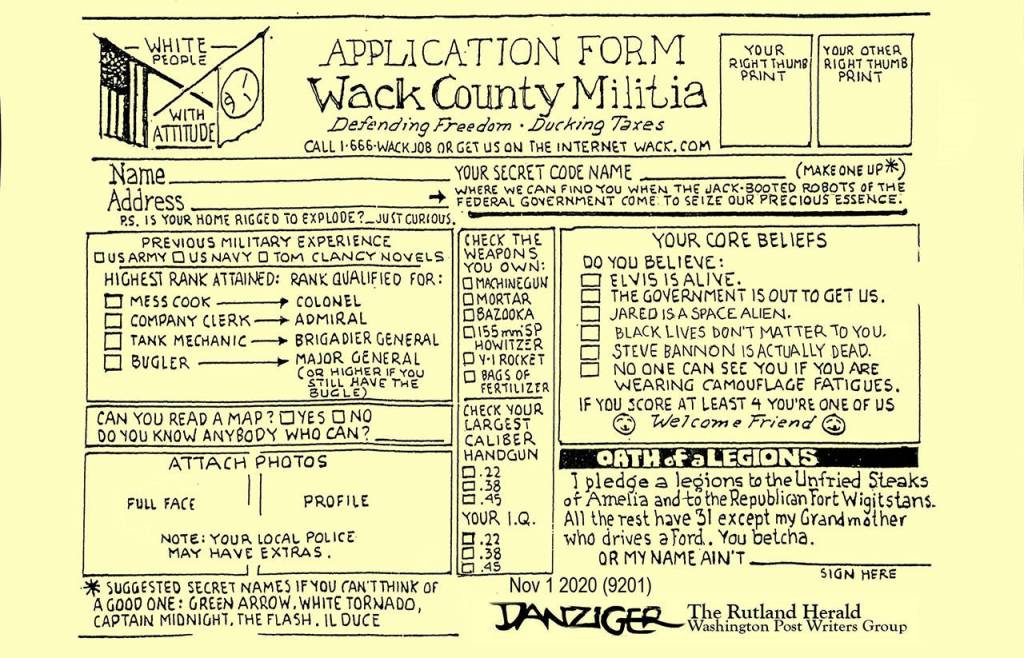 WHITE
PEOPLE
WITH
ATTITUDE
APPLICATION FORM
Wack County Militia
Defending Freedom · Ducking Taxes
CALL 1-666-WACKJOB OR GET US ON THE INTERNET WACK.COM
YOUR
RIGHT THUMB
PRINT
YOUR OTHER
RIGHT THUMB
PRINT
Name
YOUR SECRET CODE NAME (MAKE ONE UP*)
Address
WHERE WE CAN FIND YOU WHEN THE JACK-BOOTED ROBOTS OF THE
FEDERAL GOVERNMENT COME TO SEIZE OUR PRECIOUS ESSENCE.
P.S. IS YOUR HOME RIGGED TO EXPLODE? JUST CURIOUS.
PREVIOUS MILITARY EXPERIENCE
US ARMY US NAVY TOM CLANCY NOVELS
HIGHEST RANK ATTAINED: RANK QUALIFIED FOR:
MESS COOK → COLONEL
COMPANY CLERK → ADMIRAL
TANK MECHANIC → BRIGADIER GENERAL
BUGLER → MAJOR GENERAL
(OR HIGHER IF YOU
STILL HAVE THE
BUGLE)
CAN YOU READ A MAP? YES NO
DO YOU KNOW ANYBODY WHO CAN?
ATTACH PHOTOS
FULL FACE
PROFILE
NOTE: YOUR LOCAL POLICE
MAY HAVE EXTRAS.
* SUGGESTED SECRET NAMES IF YOU CAN'T THINK OF
A GOOD ONE: GREEN ARROW, WHITE TORNADO,
CAPTAIN MIDNIGHT, THE FLASH, IL DUCE
CHECK THE
WEAPONS
YOU OWN:
MACHINEGUN
MORTAR
BAZOOKA
155 mm SP
HOWITZER
V-1 ROCKET
BAGS OF
FERTILIZER
CHECK YOUR
LARGEST
CALIBER
HANDGUN
.22
.38
.45
YOUR I.Q.
.22
.38
.45
YOUR CORE BELIEFS
DO YOU BELIEVE:
ELVIS IS ALIVE.
THE GOVERNMENT IS OUT TO GET US.
JARED IS A SPACE ALIEN.
BLACK LIVES DON'T MATTER TO YOU.
STEVE BANNON IS ACTUALLY DEAD.
NO ONE CAN SEE YOU IF YOU ARE
WEARING CAMOUFLAGE FATIGUES.
IF YOU SCORE AT LEAST 4 YOU'RE ONE OF US
Welcome Friend
OATH of a LEGIONS
I pledge a legions to the Unfried Steaks
of Amelia and to the Republican Fort Wigitstans.
All the rest have 31 except my Grandmother
who drives a Ford.. You betcha.
OR MY NAME AIN'T
SIGN HERE
Nov 1 2020 (9201)
DANZIGER
The Rutland Herald
Washington Post Writers Group